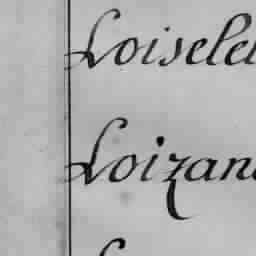 Loisele
Loizan